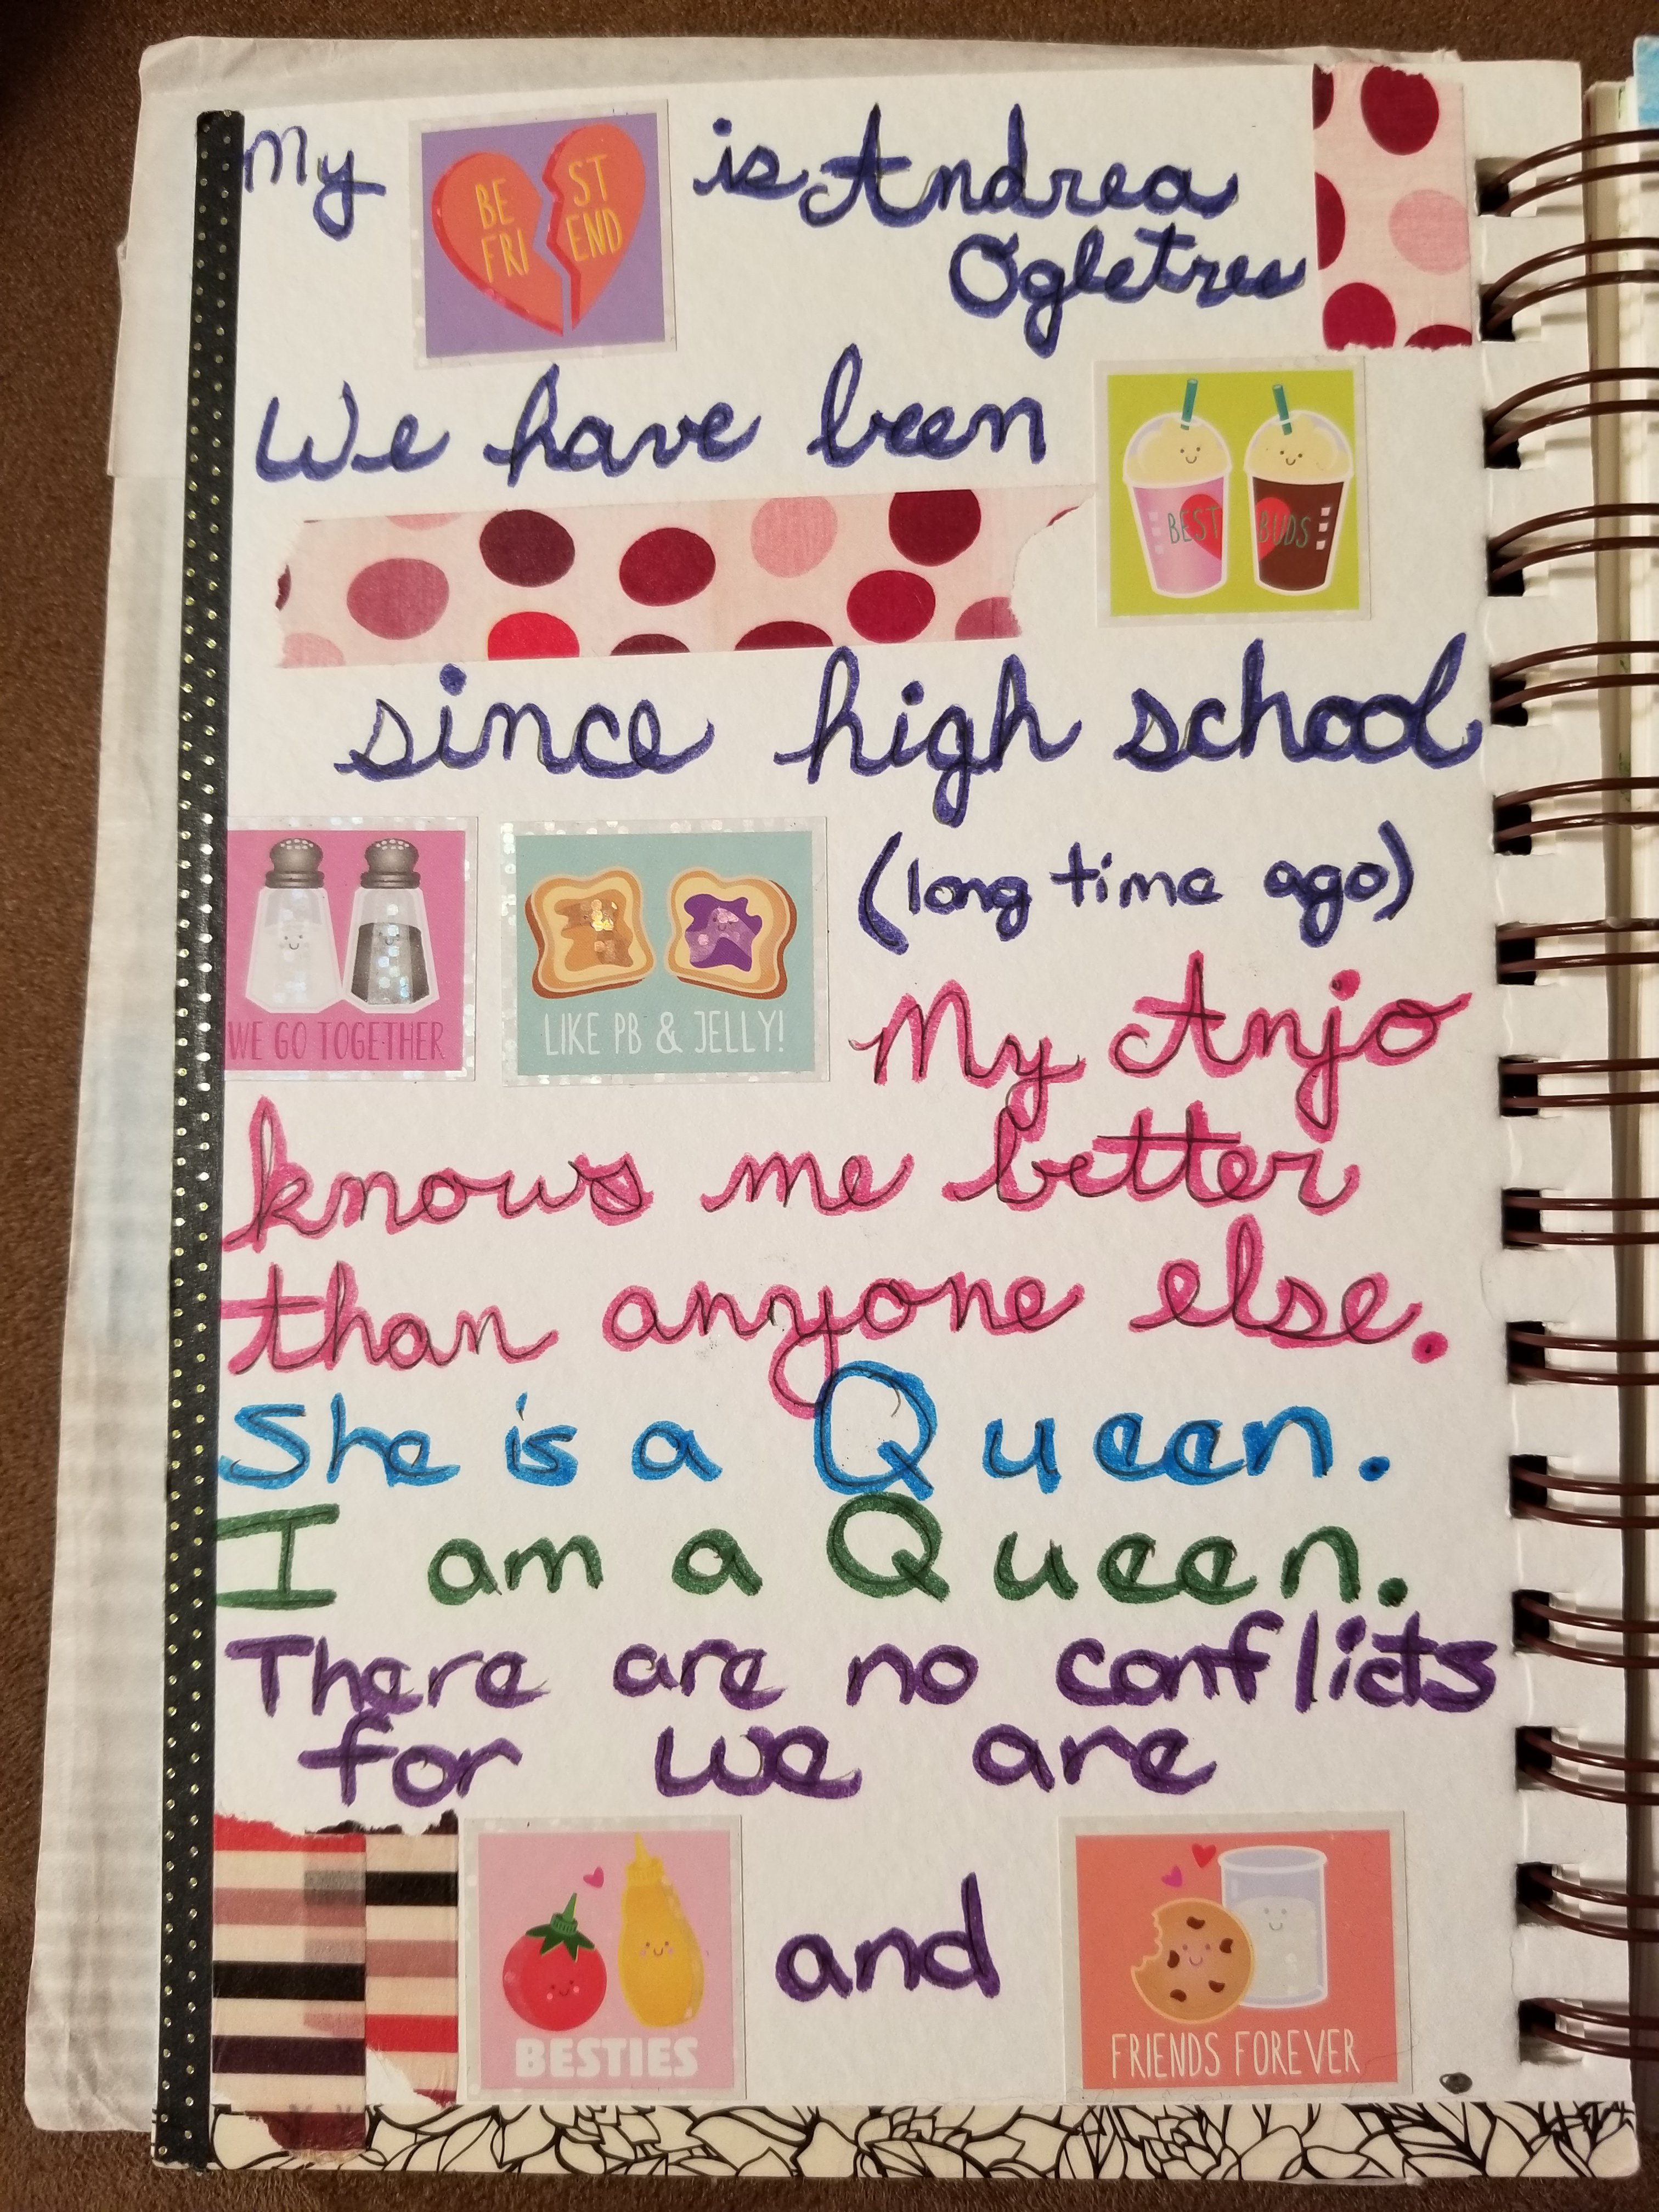 My BE ST FRI END is Andrea
Ogletree
We have been
BEST BUDS
since high school
WE GO TOGETHER
LIKE PB & JELLY!
(long time ago)
My Anjo
knows me better
than anyone else.
She is a Queen.
I am a Queen.
There are no conflicts
for we are
BESTIES
and
FRIENDS FOREVER